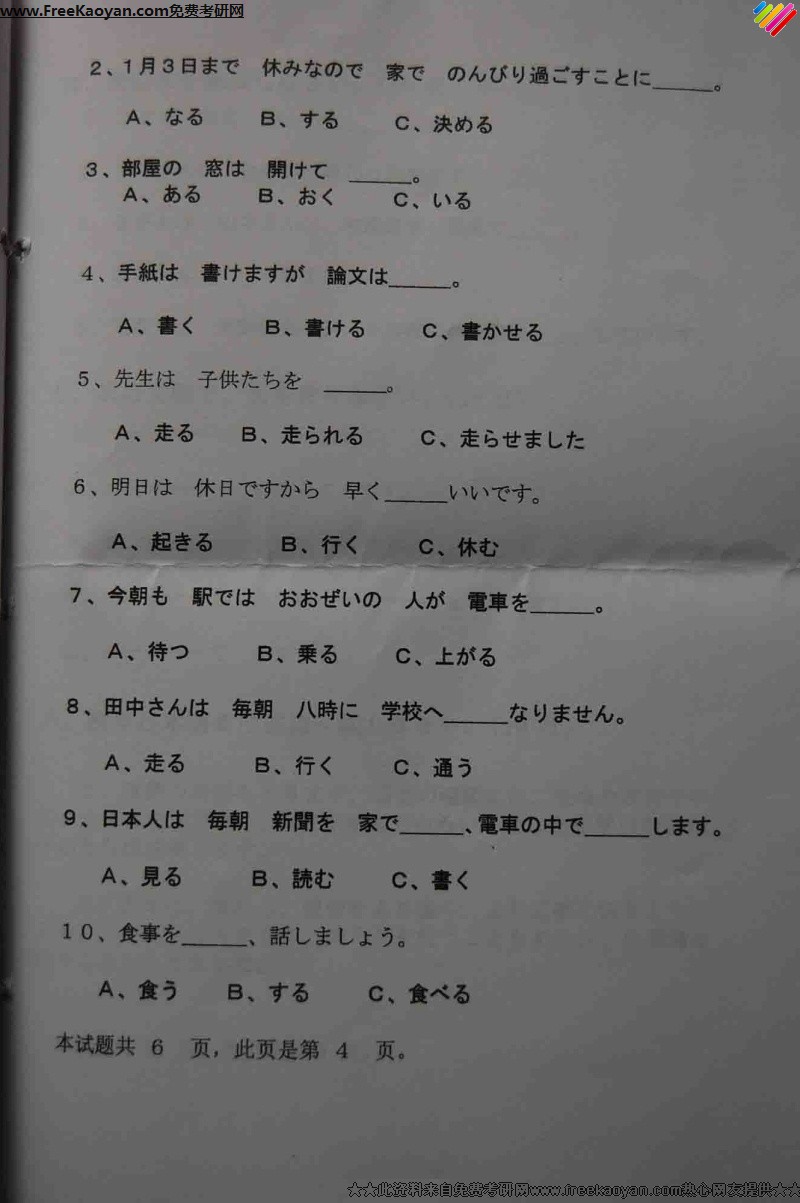 www.FreeKaoyan.com免费考研网
2、1月3日まで 休みなので 家で のんびり過ごすことに______。
A、なる B、する C、決める
3、部屋の 窓は 開けて ______。
A、ある B、おく C、いる
4、手紙は 書けますが 論文は______。
A、書く B、書ける C、書かせる
5、先生は 子供たちを ______。
A、走る B、走られる C、走らせました
6、明日は 休日ですから 早く______いいです。
A、起きる B、行く C、休む
7、今朝も 駅では おおぜいの 人が 電車を______。
A、待つ B、乗る C、上がる
8、田中さんは 毎朝 八時に 学校へ______なりません。
A、走る B、行く C、通う
9、日本人は 毎朝 新聞を 家で______、電車の中で______します。
A、見る B、読む C、書く
10、食事を______、話しましょう。
A、食う B、する C、食べる
本试题共 6 页，此页是第 4 页。
☆☆此资料来自免费考研网www.freekaoyan.com热心网友提供☆☆